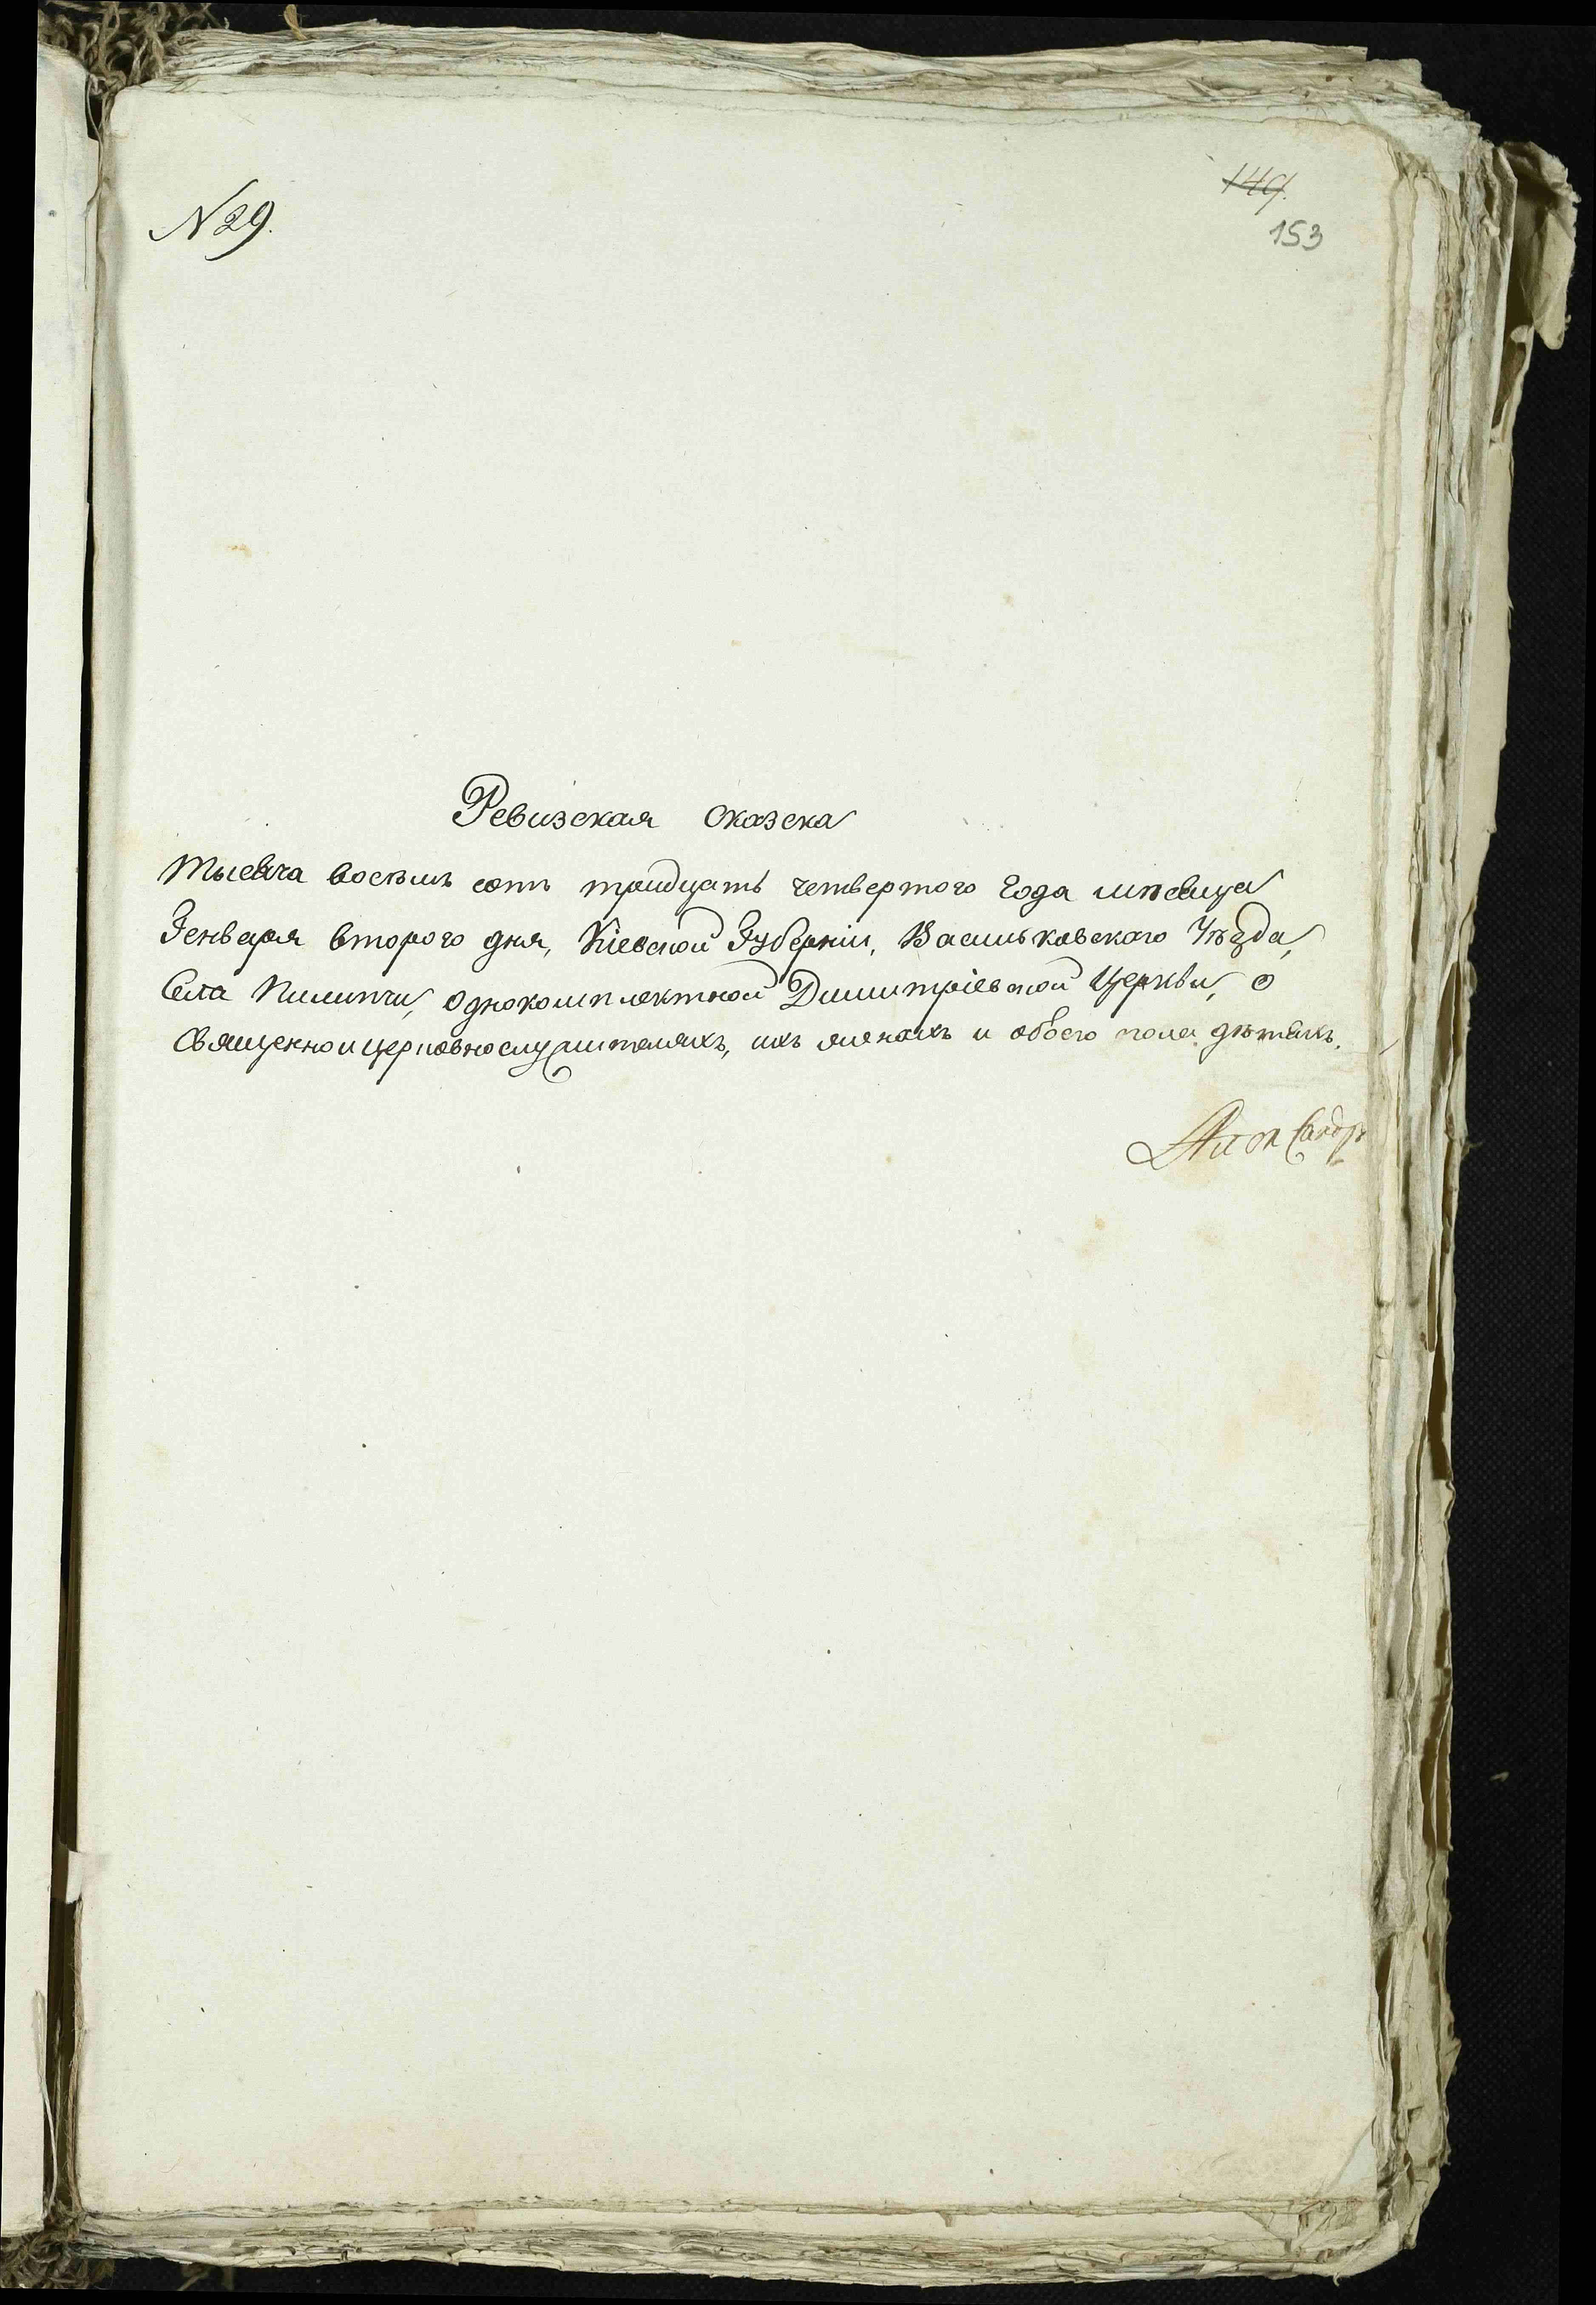 N 29.
149.
153
Ревизская сказска
Тысяча восемь сотъ тридцать четвертого года мѣсяца
Генваря второго дня, Кіевской Губерніи, Васильковскаго Уѣзда,
Села Пилипчи, однокомплектной Димитріевской Церкви, о
Священноицерковнослужителяхъ, ихъ женахъ и обоего пола дѣтяхъ.